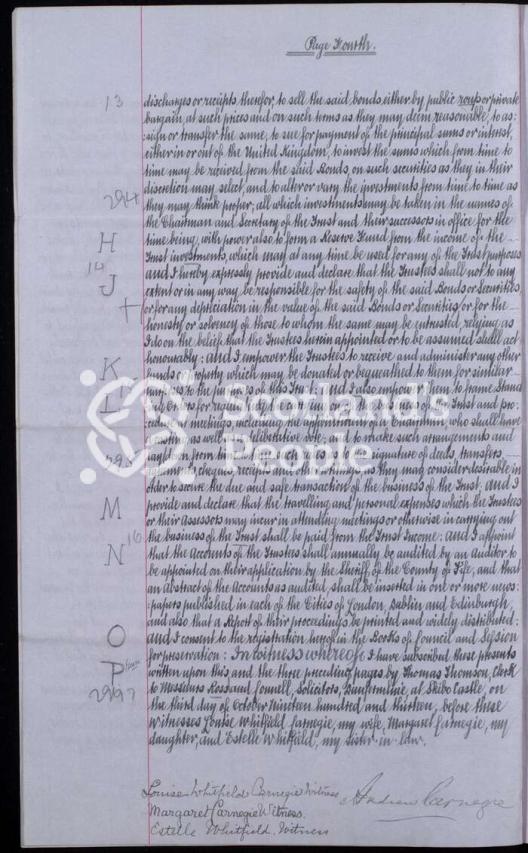 Page Fourth.
13
discharges or receipts therefor, to sell the said bonds either by public roup or private
bargain, at such prices and on such terms as they may deem reasonable, to as:
:sign or transfer the same, to sue for payment of the principal sums or interest,
either in or out of the United Kingdom, to invest the sums which from time to
time may be received from the said Bonds, on such securities as they in their
discretion may select, and to alter or vary the investments from time to time as
294
they may think proper; all which investments may be taken in the names of
the Chairman and Secretary of the Trust and their successors in office for the
H
time being, with power also to form a Reserve Fund from the income of the
Trust investments, which may at any time be used for any of the Trust purposes
14
J
and I hereby expressly provide and declare that the Trustees shall not to any
extent or in any way be responsible for the safety of the said Bonds or Securities,
or for any depreciation in the value of the said Bonds or Securities or for the
honesty or solvency of those to whom the same may be entrusted, relying as
I do on the belief that the Trustees herein appointed or to be assumed shall act
honourably: And I empower the Trustees to receive and administer any other
K
funds or property which may be donated or bequeathed to them for similar
purposes to the purposes of this Trust: And I also empower them to frame
L
the carrying of the Trust and pro:
meetings, including the appointment of a Chairman, who shall have
as well as a deliberative vote, and to make such arrangements and
295
from time to time signature of deeds, transfers,
cheques, receipts and other as they may consider desirable in
order to secure the due and safe transaction of the business of the Trust: And I
M
provide and declare that the travelling and personal expenses which the Trustees
or their Assessors may incur in attending meetings or otherwise in carrying out
16
the business of the Trust shall be paid from the Trust Income: And I appoint
N
that the Accounts of the Trustees shall annually be audited by an Auditor to
be appointed on their application by the Sheriff of the County of Fife, and that
an Abstract of the Accounts as audited, shall be inserted in one or more news:
:papers published in each of the Cities of London, Dublin and Edinburgh,
O
and also that a Report of their proceedings be printed and widely distributed:
And I consent to the registration hereof in the Books of Council and Session
P
for preservation: In witness whereof I have subscribed these presents
written upon this and the three preceding pages by Thomas Thomson, Clerk
to Messieurs Ross and Connell, Solicitors, Dunfermline, at Skibo Castle, on
the third day of October Nineteen hundred and thirteen, before these
Witnesses Louise Whitfield Carnegie, my wife, Margaret Carnegie, my
daughter, and Estelle Whitfield, my sister-in-law.
Louise Whitfield Carnegie Witness
Andrew Carnegie
Margaret Carnegie Witness.
Estelle Whitfield. Witness
Scotland's
People